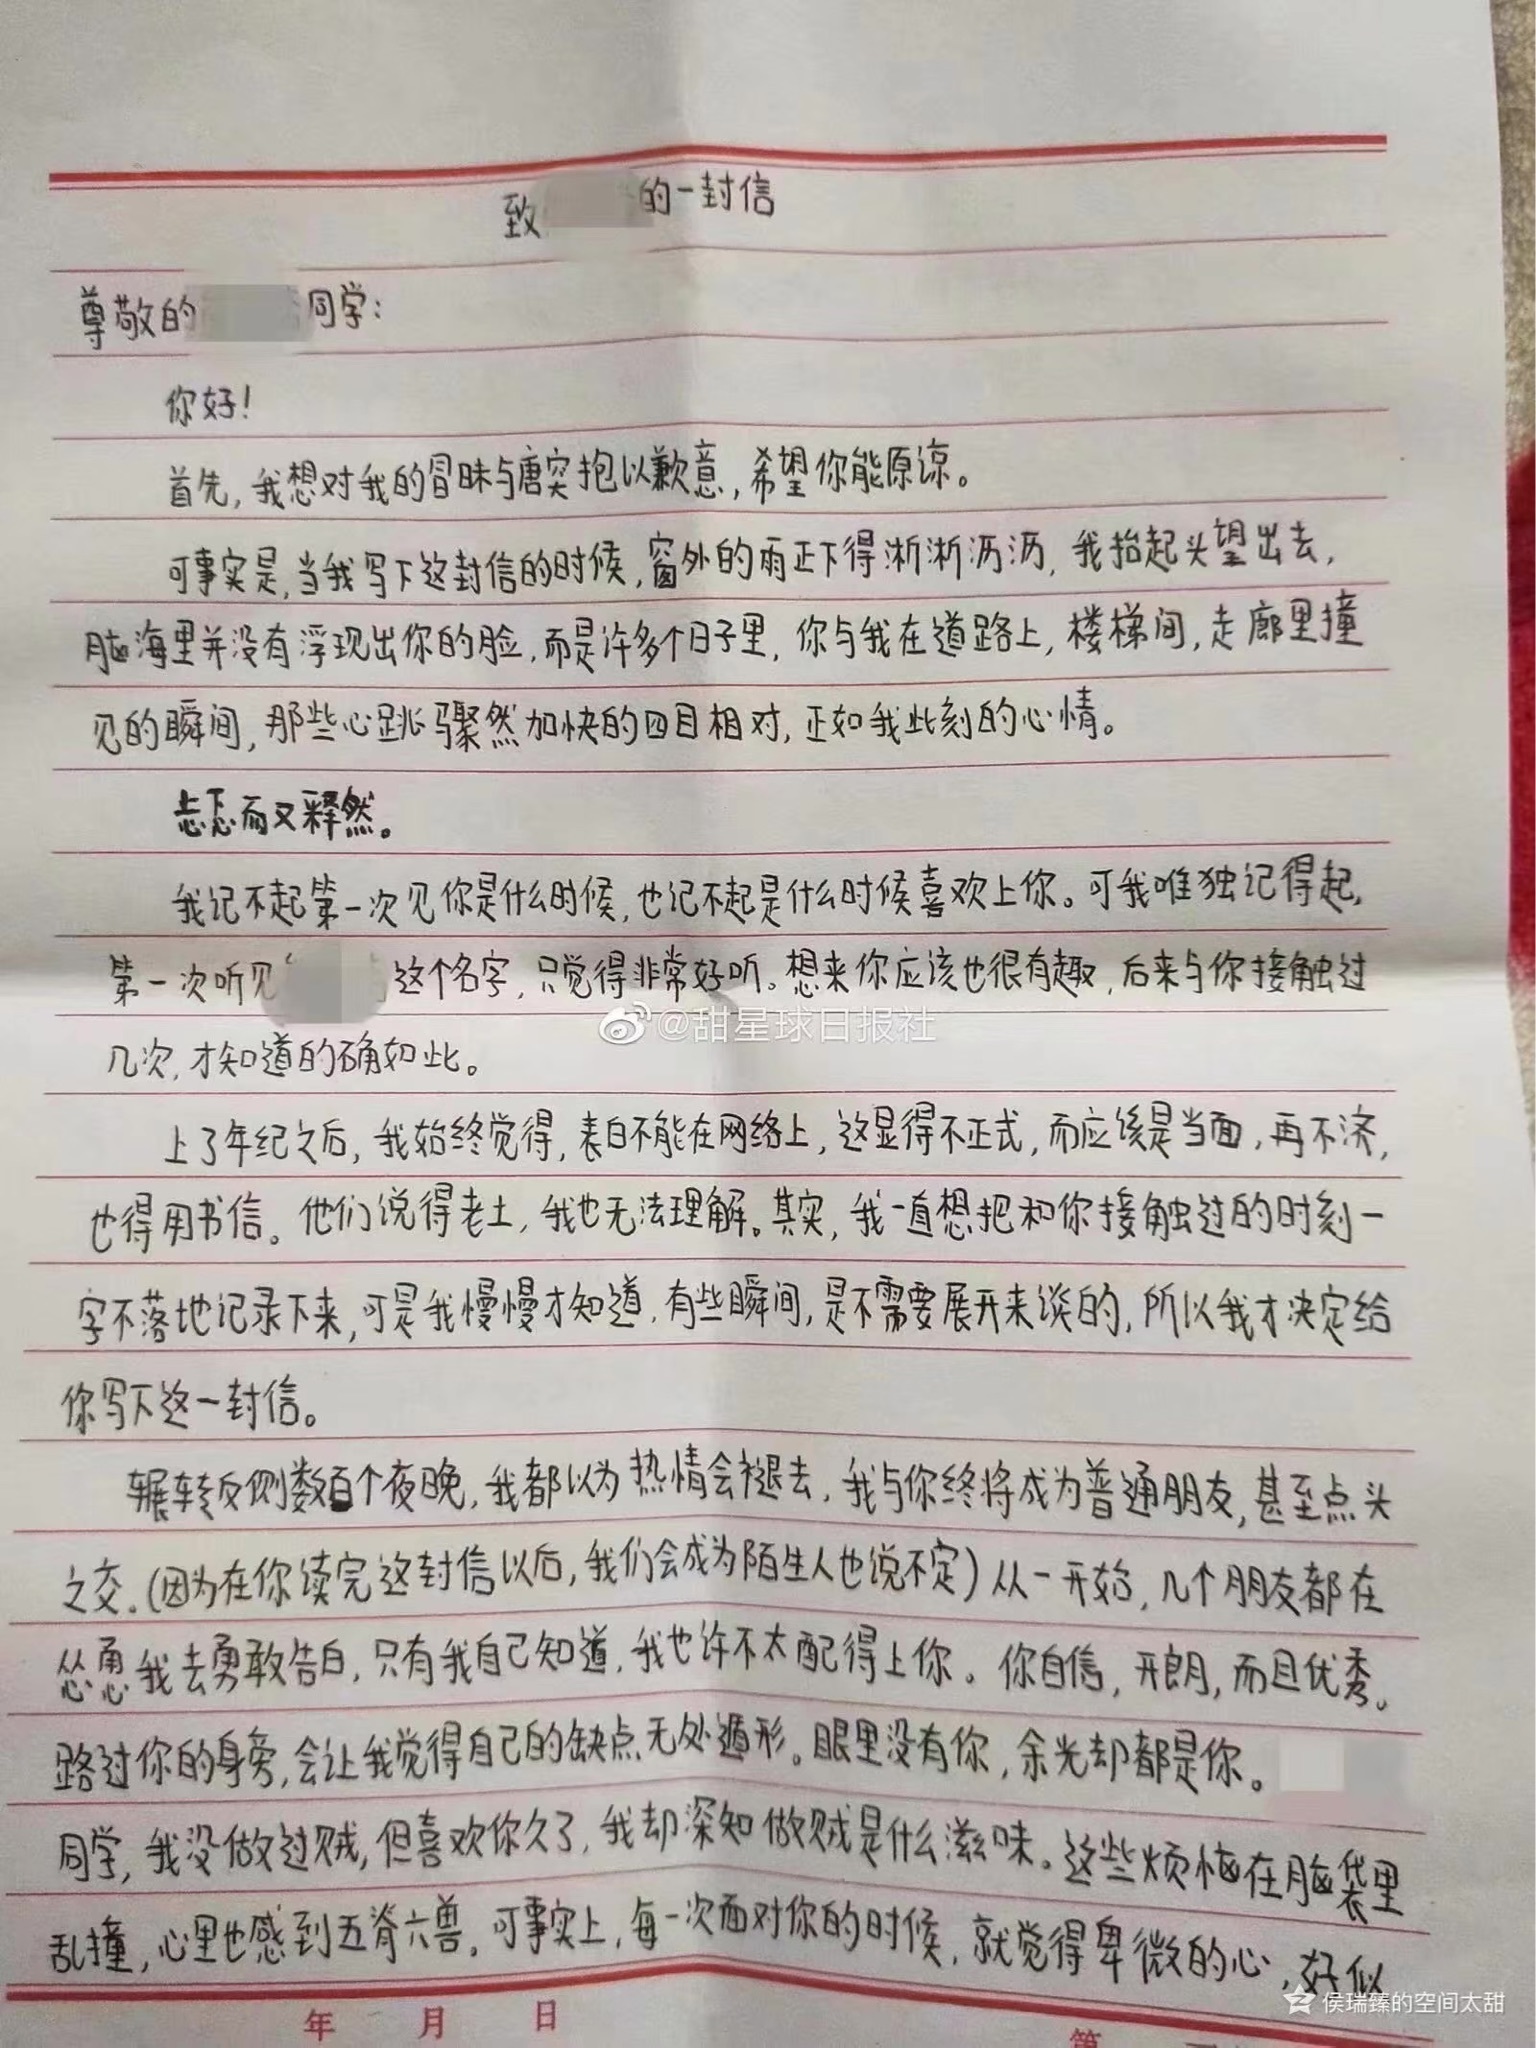 致 的一封信
尊敬的 同学：
你好！
首先，我想对我的冒昧与唐突抱以歉意，希望你能原谅。
可事实是，当我写下这封信的时候，窗外的雨正下得淅淅沥沥，我抬起头望出去，
脑海里并没有浮现出你的脸，而是许多个日子里，你与我在道路上，楼梯间，走廊里撞
见的瞬间，那些心跳骤然加快的四目相对，正如我此刻的心情。
忐忑而又释然。
我记不起第一次见你是什么时候，也记不起是什么时候喜欢上你。可我唯独记得起，
第一次听见 这个名字，只觉得非常好听。想来你应该也很有趣，后来与你接触过
@甜星球日报社
几次，才知道的确如此。
上了年纪之后，我始终觉得，表白不能在网络上，这显得不正式，而应该是当面，再不济，
也得用书信。他们说得老土，我也无法理解。其实，我一直想把和你接触过的时刻一
字不落地记录下来，可是我慢慢才知道，有些瞬间，是不需要展开来谈的，所以我才决定给
你写下这一封信。
辗转反侧数百个夜晚，我都以为热情会褪去，我与你终将成为普通朋友，甚至点头
之交。（因为在你读完这封信以后，我们会成为陌生人也说不定）从一开始，几个朋友都在
怂恿我去勇敢告白，只有我自己知道，我也许不太配得上你。你自信，开朗，而且优秀。
路过你的身旁，会让我觉得自己的缺点无处遁形。眼里没有你，余光却都是你。
同学，我没做过贼，但喜欢你久了，我却深知做贼是什么滋味。这些烦恼在脑袋里
乱撞，心里也感到五脊六兽，可事实上，每一次面对你的时候，就觉得卑微的心，好似
侯瑞臻的空间太甜
年 月 日
第